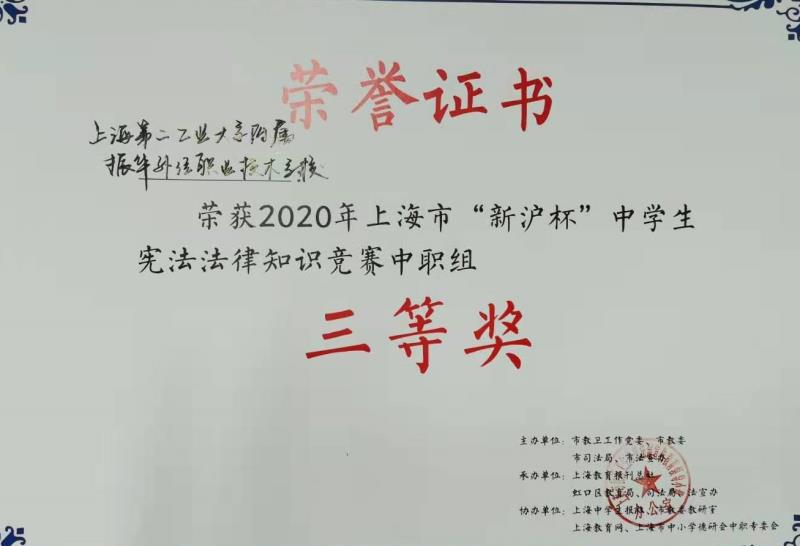 荣誉证书
上海第二工业大学附属
振华外经职业技术学校
荣获2020年上海市“新沪杯”中学生
宪法法律知识竞赛中职组
三等奖
主办单位：市教卫工作党委、市教委
市司法局、市法宣办
承办单位：上海教育报刊总社
虹口区教育局、司法局、法宣办
协办单位：上海中学生报社、市教委教研室
上海教育网、上海市中小学德研会中职专委会
办公室